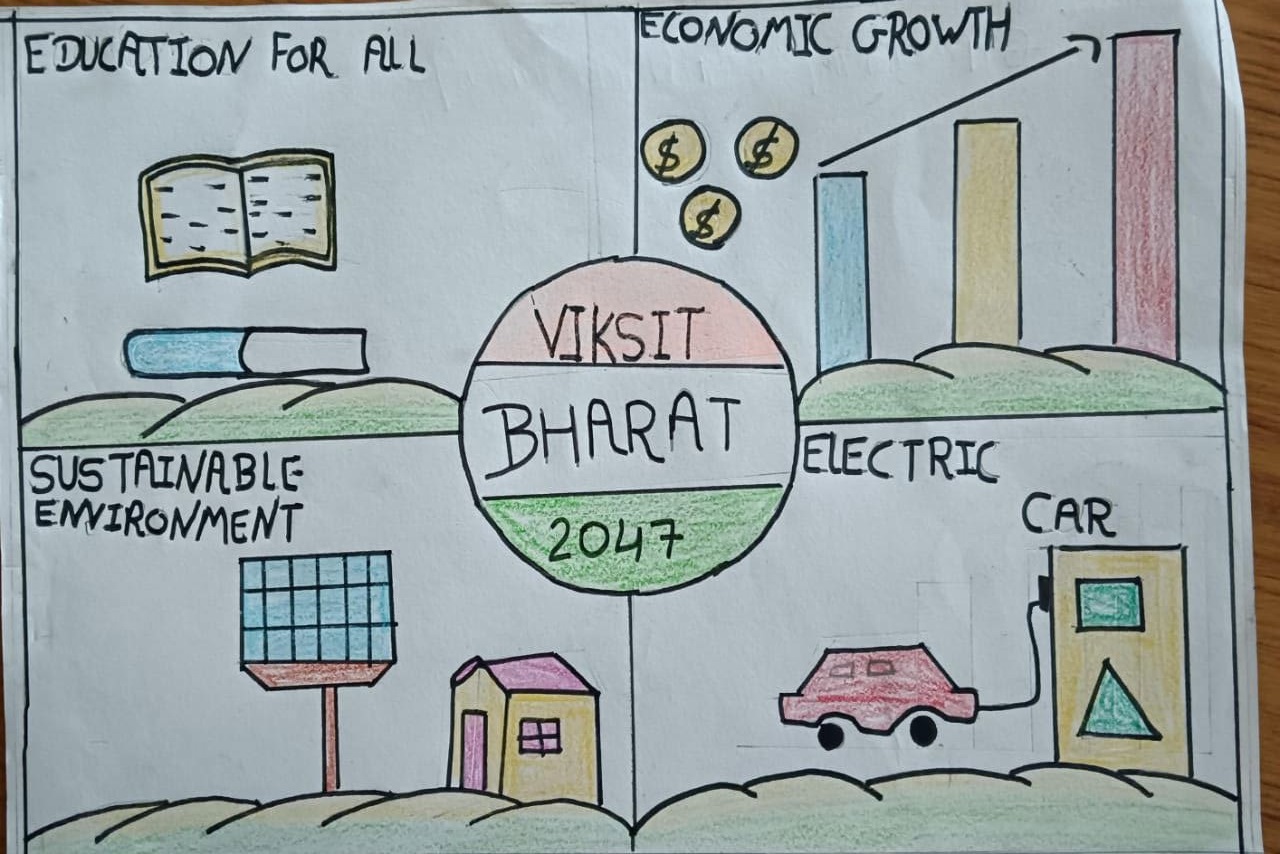 EDUCATION FOR ALL
ECONOMIC GROWTH
$ $
$
VIKSIT
BHARAT
2047
SUSTAINABLE
ENVIRONMENT
ELECTRIC
CAR